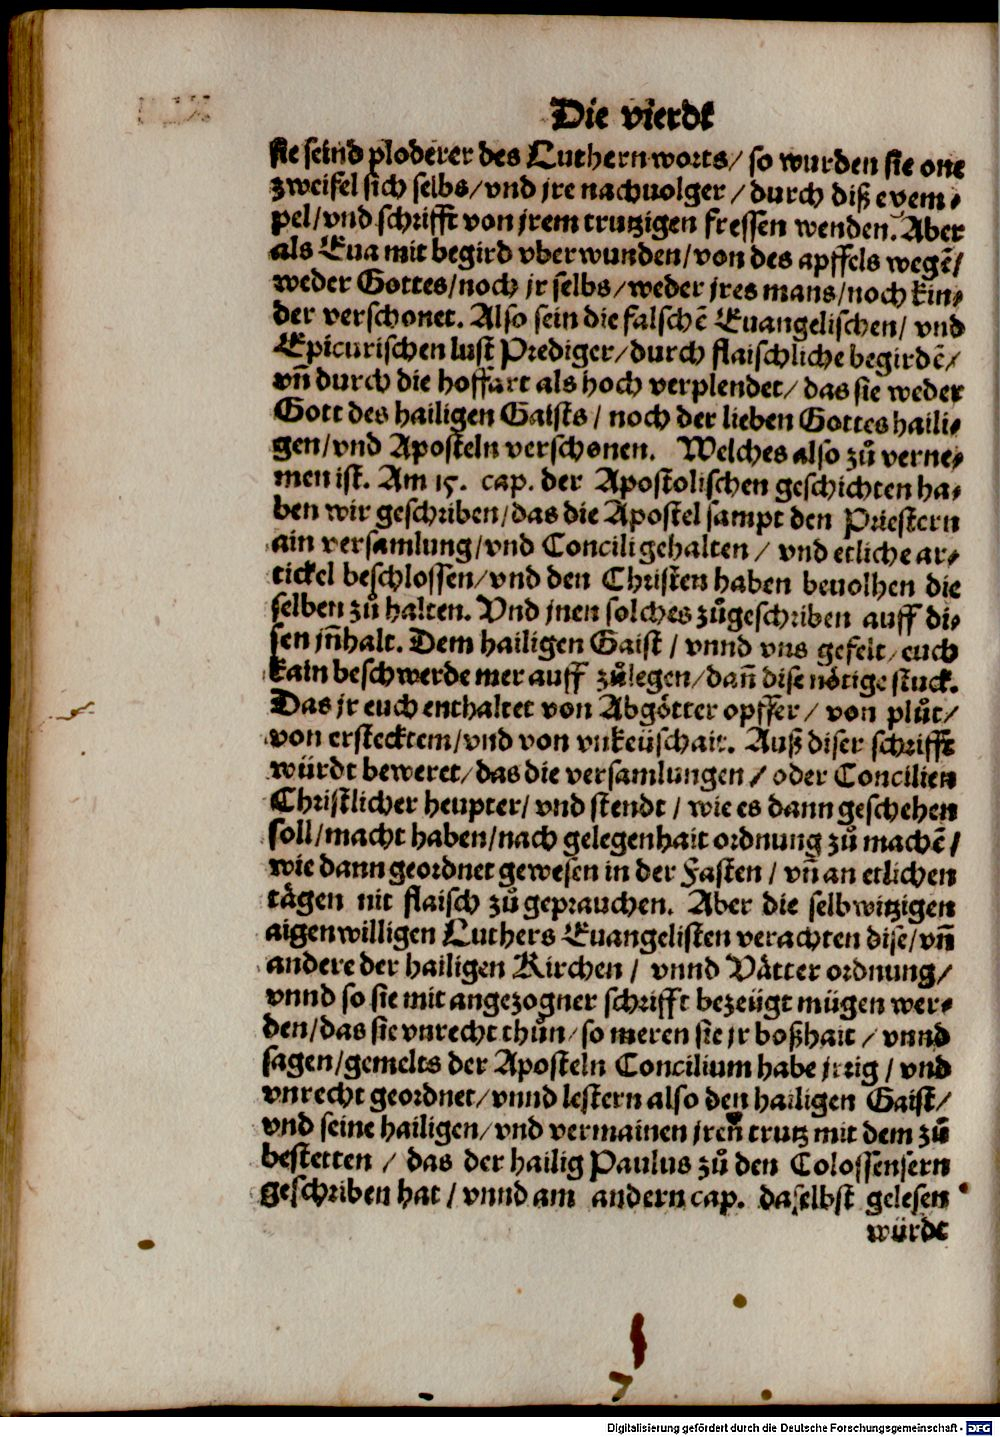 Die vierdt
sie seind ploderer des Luthern worts/ so wurden sie one
zweifel sich selbs/vnd jre nachuolger/durch diß exem⸗
pel/vnd schrifft von jrem trutzigen fressen wenden. Aber
als Eua mit begird vberwunden/von des apffels wegẽ/
weder Gottes/noch jr selbs/weder jres mans/noch kin⸗
der verschonet. Also sein die falschẽ Euangelischen/ vnd
Epicurischen lust Prediger/durch flaischliche begirdẽ/
vñ durch die hoffart als hoch verplendet/das sie weder
Gott des hailigen Gaists/ noch der lieben Gottes haili⸗
gen/vnd Aposteln verschonen. Welches also zů verne⸗
men ist. Am 15. cap. der Apostolischen geschichten ha⸗
ben wir geschriben/das die Apostel sampt den Priestern
ain versamlung/vnd Concili gehalten/ vnd etliche ar⸗
tickel beschlossen/vnd den Christen haben beuolhen die
selben zů halten. Vnd jnen solches zůgeschriben auff di⸗
sen jñhalt. Dem hailigen Gaist/ vnnd vns gefelt/euch
kain beschwerde mer auff zůlegen/dañ dise nötige stuck.
Das jr euch enthaltet von Abgötter opffer/ von plůt/
von ersticktem/vnd von vnkeüschait. Auß diser schrifft
würdt beweret/das die versamlungen/ oder Concilien
Christlicher heupter/ vnd stendt/ wie es dann geschehen
soll/macht haben/nach gelegenhait ordnung zů machẽ/
wie dann geordnet gewesen in der Fasten/ vñ an etlichen
tägen nit flaisch zů geprauchen. Aber die selbwitzigen
aigenwilligen Luthers Euangelisten verachten dise/vñ
andere der hailigen Kirchen/ vnnd Vätter ordnung/
vnnd so sie mit angezogner schrifft bezeügt mügen wer⸗
den/das sie vnrecht thůn/so meren sie jr boßhait/ vnnd
sagen/gemelts der Aposteln Concilium habe jrrig/ vnd
vnrecht geordnet/vnnd lestern also den hailigen Gaist/
vnd seine hailigen/vnd vermainen jren trutz mit dem zů
bestetten/ das der hailig Paulus zů den Colossensern
geschriben hat/ vnnd am andern cap. daselbst gelesen
würdt
Digitalisierung gefördert durch die Deutsche Forschungsgemeinschaft - DFG